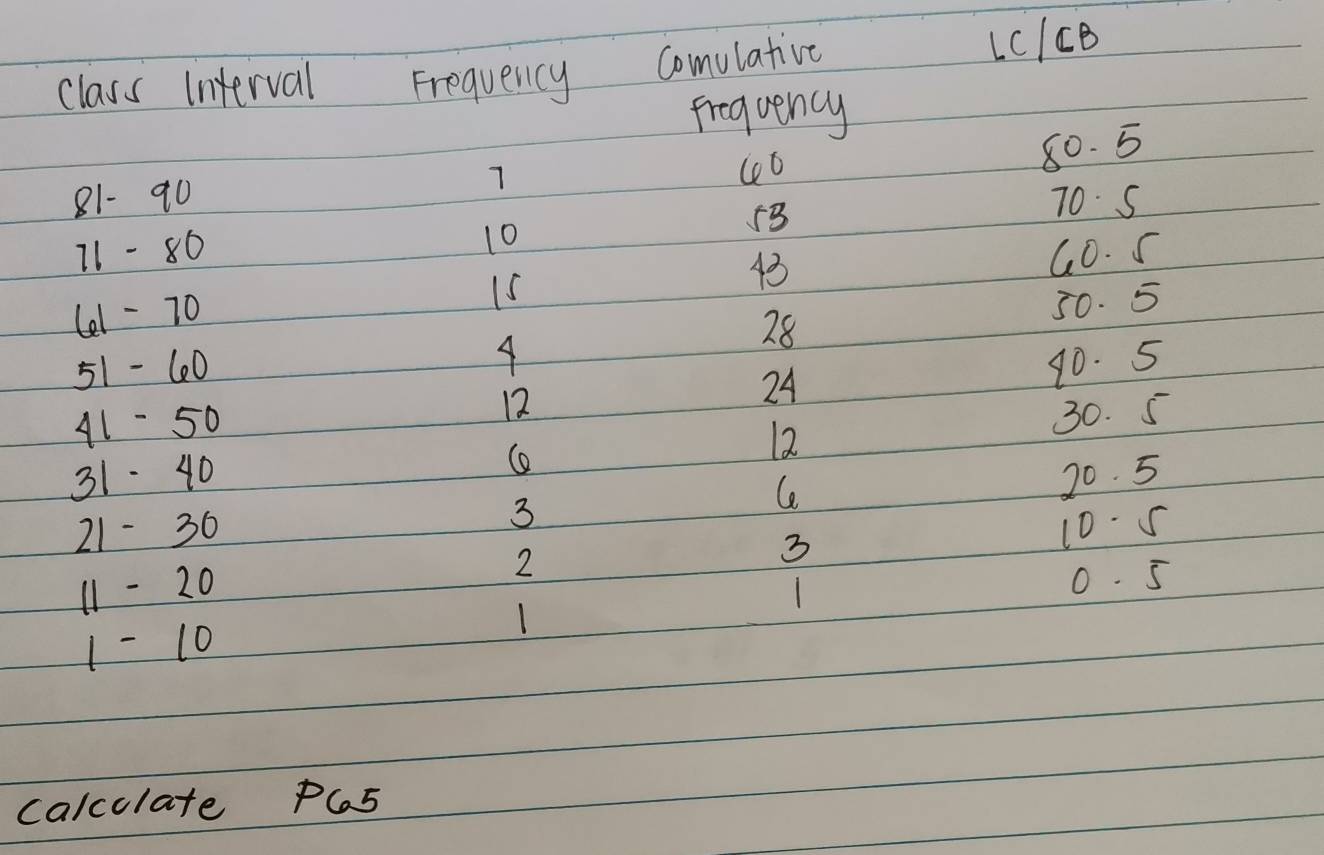 Class Interval Frequency Comulative Frequency LC/CB
81- 90 7 60 80.5
71 - 80 10 53 70.5
61 - 70 15 43 60.5
51 - 60 4 28 50.5
41 - 50 12 24 40.5
31 - 40 6 12 30.5
21 - 30 3 6 20.5
11 - 20 2 3 10.5
1 - 10 1 1 0.5
calculate P65